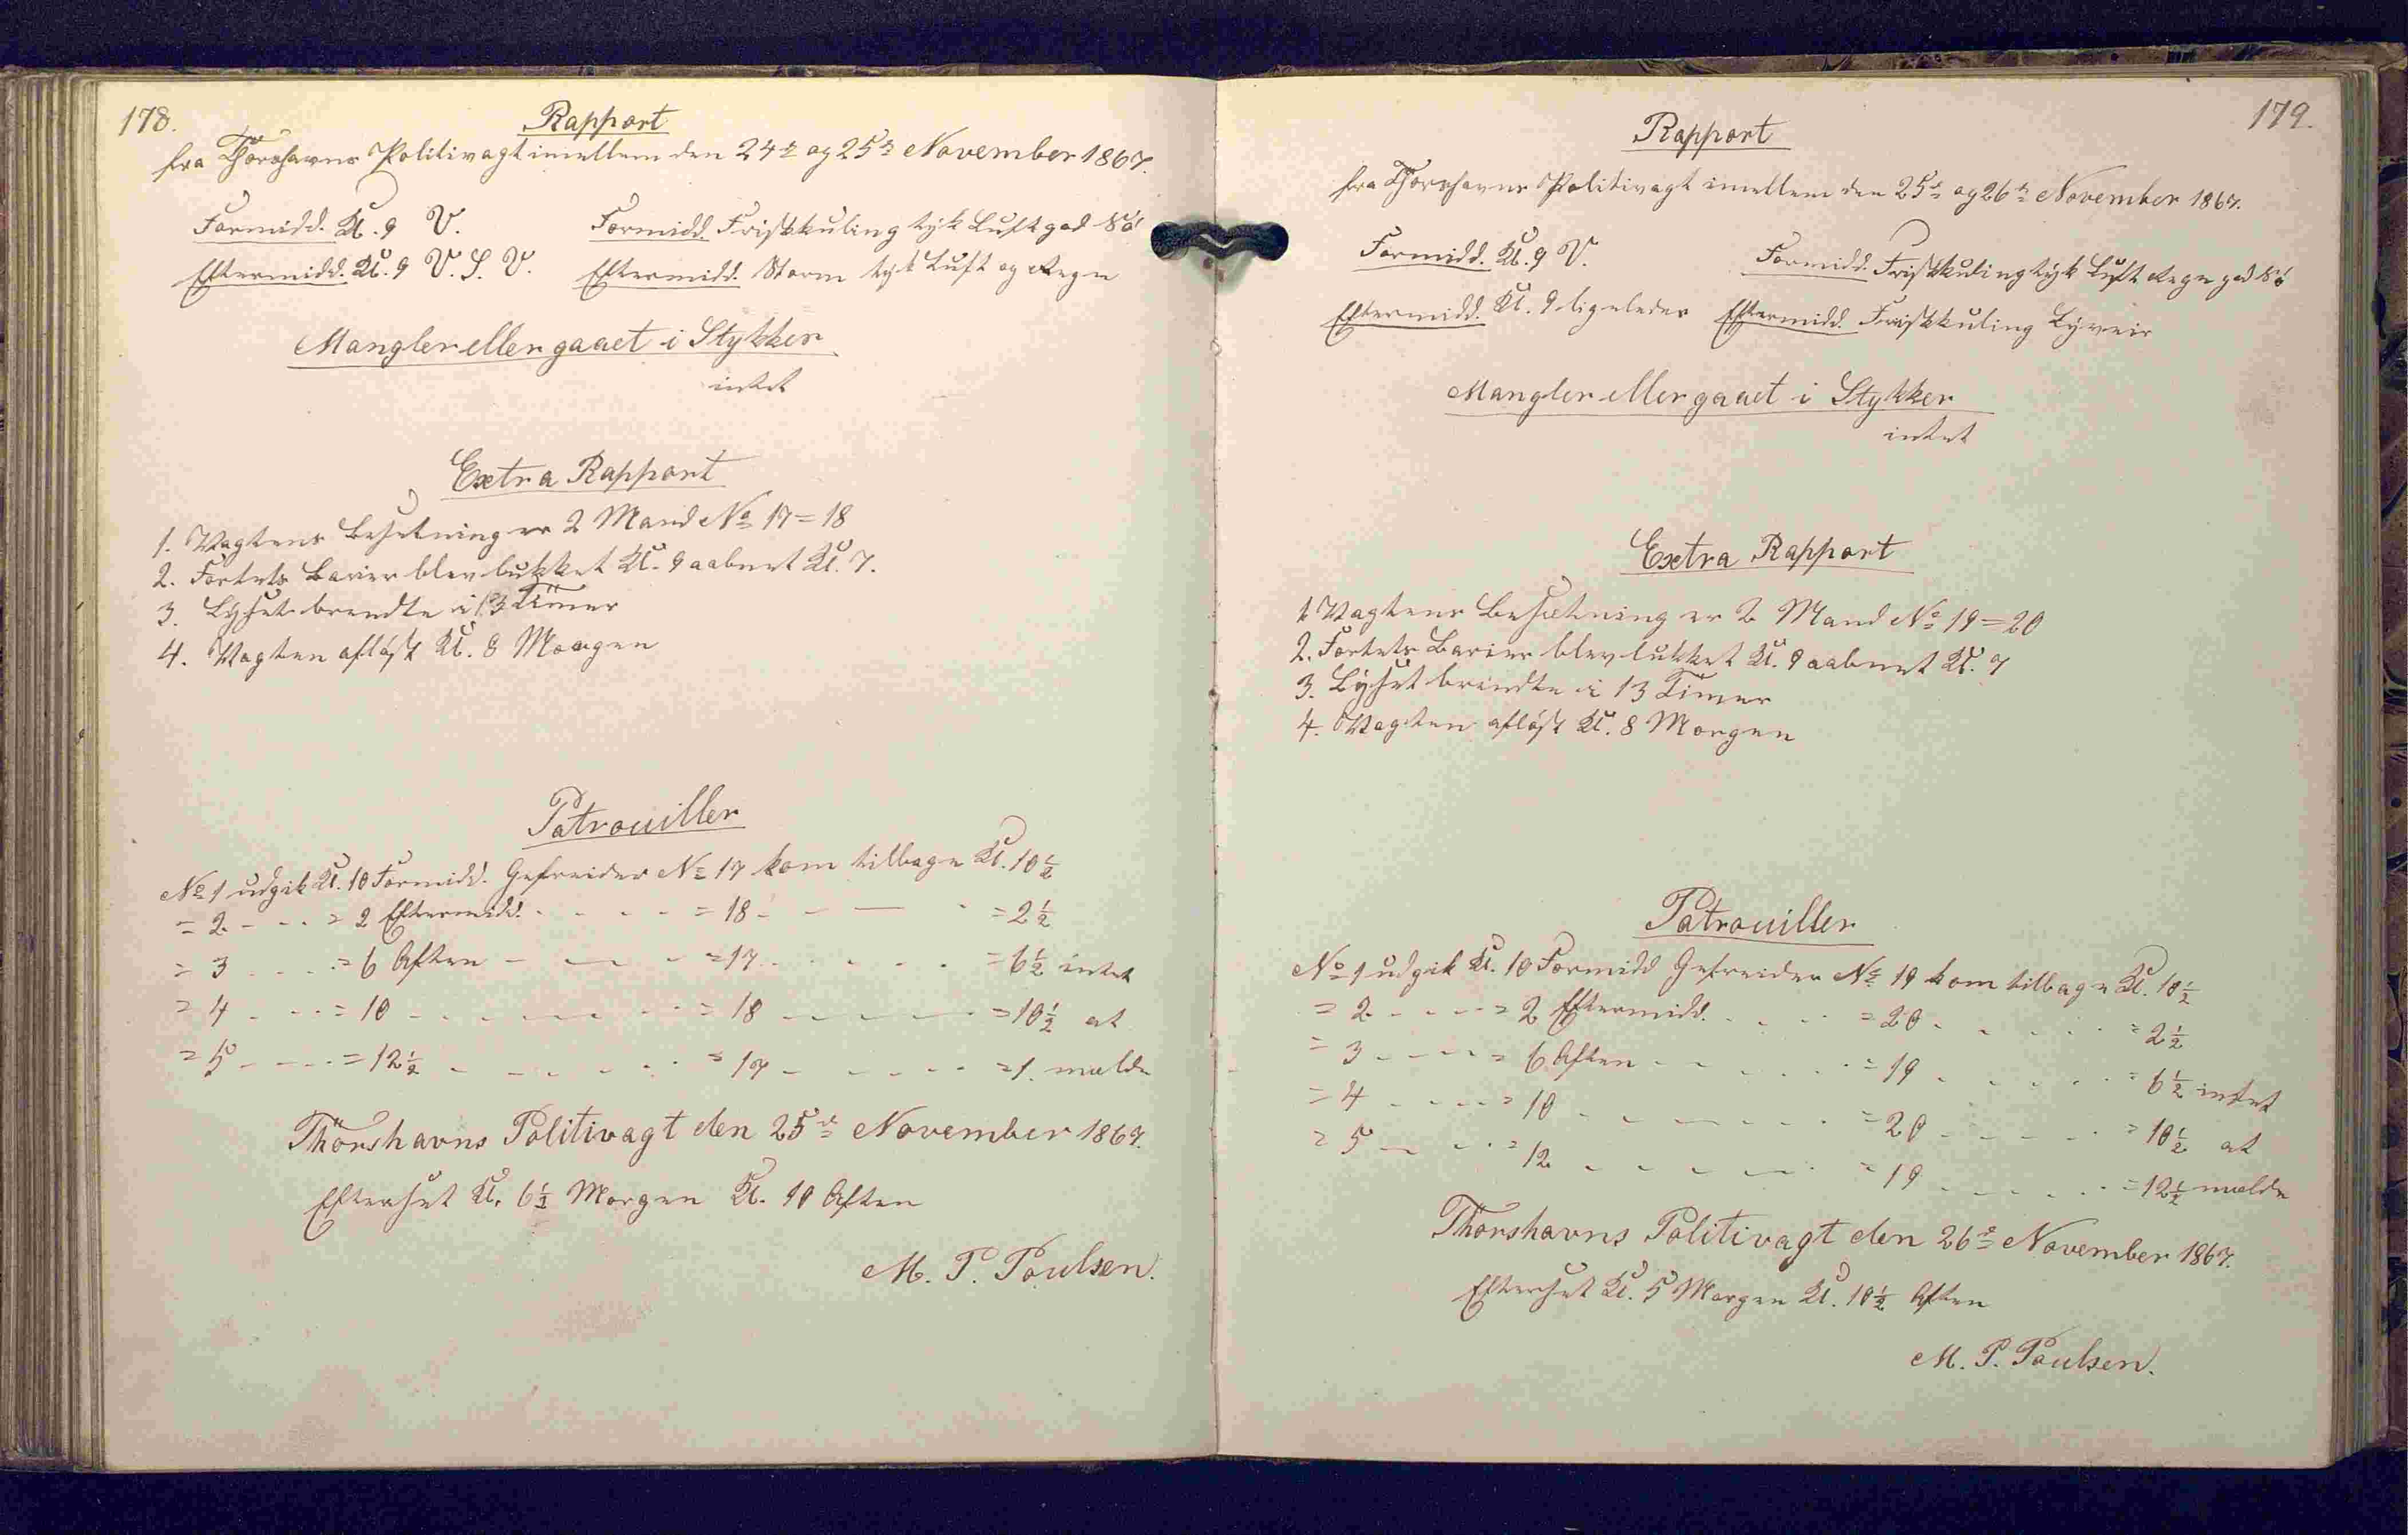 178.
Rapport
fra Thorshavns Politivagt imellem den 24de og 25de November 1867.
Formidd. Kl. 9 V.
Formidd. Friskkuling tyk Luft god Sö
Eftermidd. Kl. 9 V. S. V.
Eftermidd. Storm tyk Luft og Regn
Mangler eller gaaet i Stykker
intet
Extra Rapport
1. Vagtens Besetning er 2 Mand No 17=18
2. Fortets Barier blev lukket Kl. 9 aabnet Kl. 7.
3. Lyset brendte i 13 Timer
4. Vagten aflöst Kl. 8 Morgen
Patrouiller
No 1 udgik Kl. 10 Formidd. Gefreider No 17 kom tilbage Kl. 10½
= 2 - - - = 2 Eftermidd. - - - = 18 - - - = 2½
= 3 - - - = 6 Aften - - - = 17 - - - = 6½ intet
= 4 - - - = 10 - - - = 18 - - - = 10½ at
= 5 - - - = 12½ - - - = 17 - - - = 1. melde
Thorshavns Politivagt den 25de November 1867.
Efterset Kl. 6½ Morgen Kl. 10 Aften
M. P. Poulsen.
179.
Rapport
fra Thorshavns Politivagt imellem den 25de og 26de November 1867.
Formidd. Kl. 9 V.
Formidd. Friskkuling tyk Luft Regn god Sö
Eftermidd. Kl. 9 ligeledes
Eftermidd. Friskkuling Byveir
Mangler eller gaaet i Stykker
intet
Extra Rapport
1 Vagtens Besætning er 2 Mand No 19=20
2. Fortets Barier blev lukket Kl. 9 aabnet Kl. 7
3. Lyset brendte i 13 Timer
4. Vagten aflöst Kl. 8 Morgen
Patrouiller
No 1 udgik Kl. 10 Formidd Gefreider No 19 kom tilbage Kl. 10½
= 2 - - - = 2 Eftermidd. - - - = 20 - - - = 2½
= 3 - - - = 6 Aften - - - = 19 - - - = 6½ intet
= 4 - - - = 10 - - - = 20 - - - = 10½ at
= 5 - - - = 12 - - - = 19 - - - = 12½ melde
Thorshavns Politivagt den 26de November 1867.
Efterset Kl. 5 Morgen Kl. 10½ Aften
M. P. Poulsen.